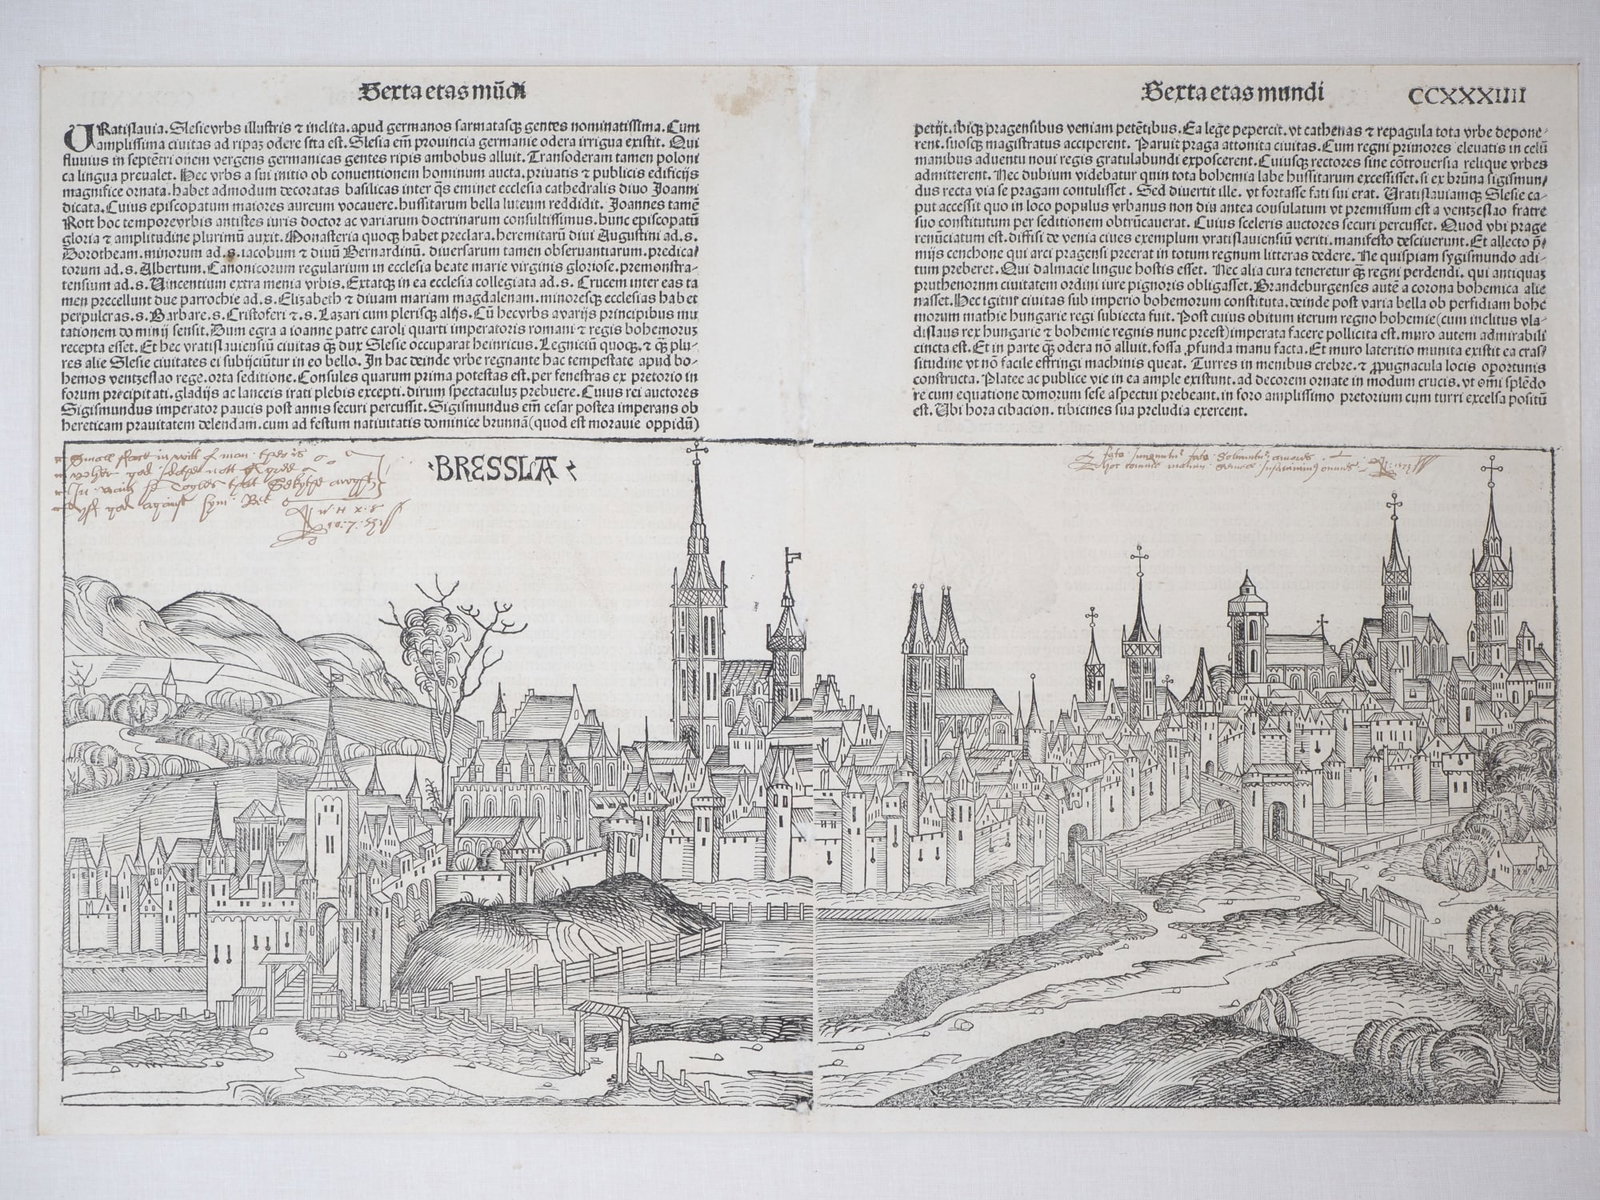 Sexta etas mūdi
URatislauia. Slesie vrbs illustris ⁊ inclita. apud germanos sarmatasqȝ gentes nominatissima. Cum
amplissima ciuitas ad ripaȝ odere sita est. Slesia em̄ prouincia germanie odera irrigua existit. Qui
fluuius in septētrionem vergens germanicas gentes ripis ambobus alluit. Transoderam tamen poloni
ca lingua preualet. Hec vrbs a sui initio ob conuentionem hominum aucta. priuatis ⁊ publicis edificijs
magnifice ornata. habet admodum decoratas basilicas inter q̄s eminet ecclesia cathedralis diuo Joanni
dicata. Cuius episcopatum maiores aureum vocauere. hussitarum bella luteum reddidit. Joannes tamē
Rott hoc tempore vrbis antistes iuris doctor ac variarum doctrinarum consultissimus. hunc episcopatū
gloria ⁊ amplitudine plurimū auxit. Monasteria quoqȝ habet preclara. heremitarū diui Augustini ad. s.
Dorotheam. minorum ad. s. iacobum ⁊ diuū Bernardinū. diuersarum tamen obseruantiarum. predica/
torum ad. s. Albertum. Canonicorum regularium in ecclesia beate marie virginis gloriose. premonstra-
tensium ad. s. Vincentium extra menia vrbis. Extatqȝ in ea ecclesia collegiata ad. s. Crucem inter eas ta
men precellunt due parrochie ad. s. Elizabeth ⁊ diuam mariam magdalenam. minoresqȝ ecclesias habet
perpulcras. s. Barbare. s. Cristoferi ⁊. s. Lazari cum plerisqȝ alijs. Cū hec vrbs a varijs principibus mu
tationem dominij sensit. Dum egra a ioanne patre caroli quarti imperatoris romani ⁊ regis bohemoruȝ
recepta esset. Et hec vratislauiensiū ciuitas q̄ȝ dux Slesie occuparat heinricus. Legniciū quoqȝ. ⁊ q̄ȝ plu-
res alie Slesie ciuitates ei subijciūtur in eo bello. In hac deinde vrbe regnante hac tempestate apud bo-
hemos ventzeslao rege. orta seditione. Consules quarum prima potestas est. per fenestras ex pretorio in
forum precipitati. gladijs ac lanceis irati plebis excepti. dirum spectaculuȝ prebuere. Cuius rei auctores
Sigismundus imperator paucis post annis securi percussit. Sigismundus em̄ cesar postea imperans ob
hereticam prauitatem delendam. cum ad festum natiuitatis dominice brunnā (quod est morauie oppidū)
Sexta etas mundi CCXXXIIII
petijt. ibiqȝ pragensibus veniam petētibus. Ea lege pepercit. vt cathenas ⁊ repagula tota vrbe depone-
rent. suosqȝ magistratus acciperent. Paruit praga attonita ciuitas. Cum regni primores eleuatis in celū
manibus aduentu noui regis gratulabundi exposcerent. Cuiusqȝ rectores sine cōtrouersia relique vrbes
admitterent. Nec dubium videbatur quin tota bohemia labe hussitarum excessisset. si ex brūna sigismun/
dus recta via se pragam contulisset. Sed diuertit ille. vt fortasse fati sui erat. Vratislauiamqȝ Slesie ca-
put accessit quo in loco populus vrbanus non diu antea consulatum vt premissum est a ventzeslao fratre
suo constitutum per seditionem obtrūcauerat. Cuius sceleris auctores securi percusset. Quod vbi prage
renūciatum est. diffisi de venia ciues exemplum vratislauiensiū veriti. manifesto desciuerunt. Et allecto p̄-
mijs cenchone qui arci pragensi preerat in totum regnum litteras dedere. Ne quispiam sygismundo adi-
tum preberet. Qui dalmacie lingue hostis esset. Nec alia cura teneretur q̄ȝ regni perdendi. qui antiquaȝ
pruthenornm ciuitatem ordini iure pignoris obligasset. Brandeburgenses autē a corona bohemica alie
nasset. Hec igitur ciuitas sub imperio bohemorum constituta. deinde post varia bella ob perfidiam bohe
morum mathie hungarie regi subiecta fuit. Post cuius obitum iterum regno bohemie (cum inclitus vla-
dislaus rex hungarie ⁊ bohemie regnis nunc preest) imperata facere pollicita est. muro autem admirabili
cincta est. Et in parte q̄ȝ odera nō alluit. fossa ꝓfunda manu facta. Et muro lateritio munita existit ea cras/
situdine vt nō facile effringi machinis queat. Turres in menibus crebre. ⁊ ꝓpugnacula locis oportunis
constructa. Platee ac publice vie in ea ample existunt. ad decorem ornate in modum crucis. vt om̄i splēdo
re cum equatione domorum sese aspectui prebeant. in foro amplissimo pretorium cum turri excelsa positū
est. Vbi hora cibacion. tibicines sua preludia exercent.
BRESSLA